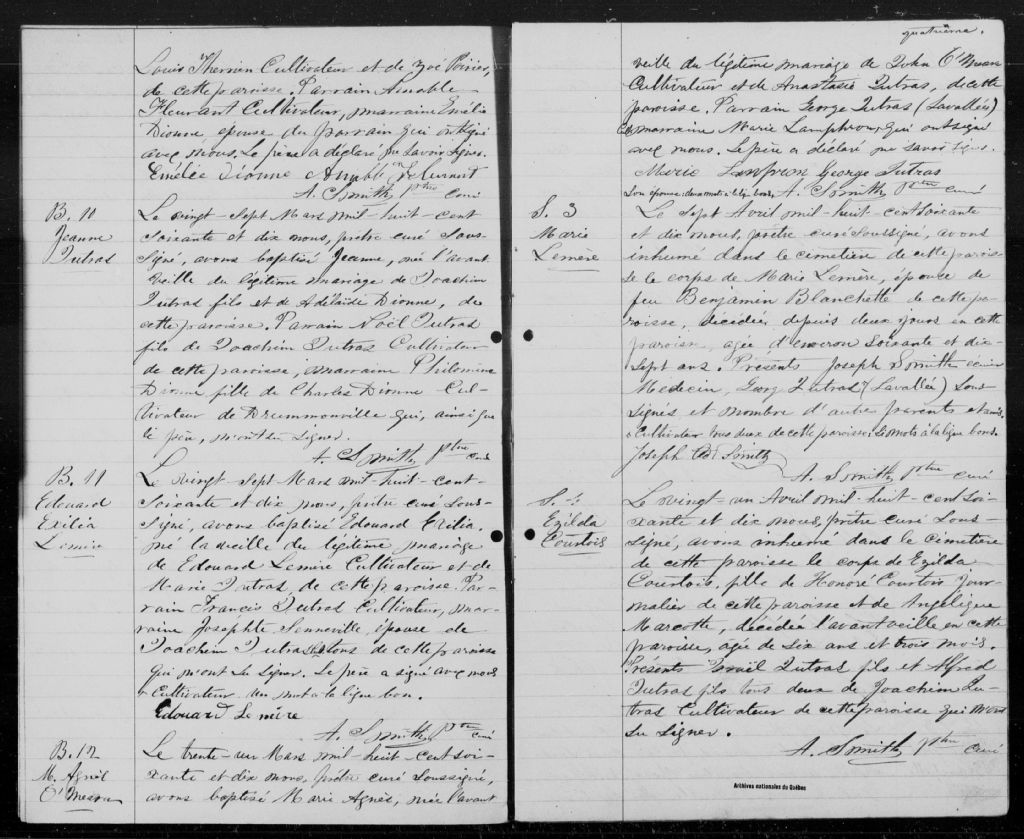 Louis Therrien Cultivateur et de Zoé Poirier,
de cette paroisse. Parrain Aimable
Fleurant Cultivateur, marraine Emélie
Dionne épouse du parrain qui ont signé
avec nous. Le père a déclaré ne savoir signer.
Emélee Dionne Aimable Fleurant
A. Smith Ptre curé
B. 10
Jeanne
Jutras
Le vingt-sept Mars mil-huit-cent
soixante et dix nous, prêtre curé sous-
signé, avons baptisé Jeanne, née l'avant
veille du légitime mariage de Joachim
Jutras fils et de Adélaïde Dionne, de
cette paroisse. Parrain Noël Jutras
fils de Joachim Jutras Cultivateur
de cette paroisse, marraine Philomène
Dionne fille de Charles Dionne Cul-
tivateur de Drummonville qui, ainsi que
le père, n'ont su signer.
A. Smith Ptre curé
B. 11
Edouard
Exilia
Lemire
Le vingt-sept Mars mil-huit-cent-
soixante et dix nous, prêtre curé sous-
signé, avons baptisé Edouard Exilia,
né la veille du légitime mariage
de Edouard Lemire Cultivateur et de
Marie Jutras de cette paroisse. Par-
rain Francis Jutras Cultivateur, mar-
raine Josephte Senneville, épouse de
Joachim Jutras tous de cette paroisse
qui n'ont su signer. Le père a signé avec nous
+ Cultivateur un mot a la ligne bon.
Edouard Le mire
A. Smith Ptre curé
B. 12
M. Agnès
O'Meara
Le trente-un Mars mil-huit-cent soi-
xante et dix nous, prêtre curé soussigné,
avons baptisé Marie Agnès, née l'avant
quatrième.
veille du légitime mariage de John O'Meara
Cultivateur et de Anastasie Jutras, de cette
paroisse. Parrain George Jutras (Lavallée)
marraine Marie Lamphron, qui ont signé
avec nous. Le père a déclaré ne savoir signer.
Marie Lanfron George Jutras
Son épouse: deux mots à la ligne bons. A. Smith Ptre curé
S. 3
Marie
Lemère
Le sept Avril mil-huit-cent soixante
et dix nous, prêtre curé soussigné, avons
inhumé dans le cimetière de cette parois-
se le corps de Marie Lemère, épouse de
feu Benjamin Blanchette de cette pa-
roisse, décédée depuis deux jours en cette
paroisse, agée d'environ soixante et dix-
sept ans. Présents Joseph Smith
Medecin, Georg Jutras (Lavallée) sous-
signés et nombre d'autre parents et amis.
+ Cultivateur tous deux de cette paroisse: mots à la ligne bons.
Joseph Smith
A. Smith Ptre curé
S.
Ezilda
Courtois
Le vingt-un Avril mil-huit-cent soi-
xante et dix nous, prêtre curé sous-
signé, avons inhumé dans le Cimetière
de cette paroisse le corps de Ezilda
Courtois, fille de Honoré Courtois Jour-
nalier de cette paroisse et de Angélique
Marcotte, décédée l'avant veille en cette
paroisse, agée de six ans et trois mois.
Présents Noël Jutras fils et Alfred
Jutras fils tous deux de Joachim Ju-
tras Cultivateur de cette paroisse qui n'ont
su signer.
A. Smith Ptre curé
Archives nationales du Québec